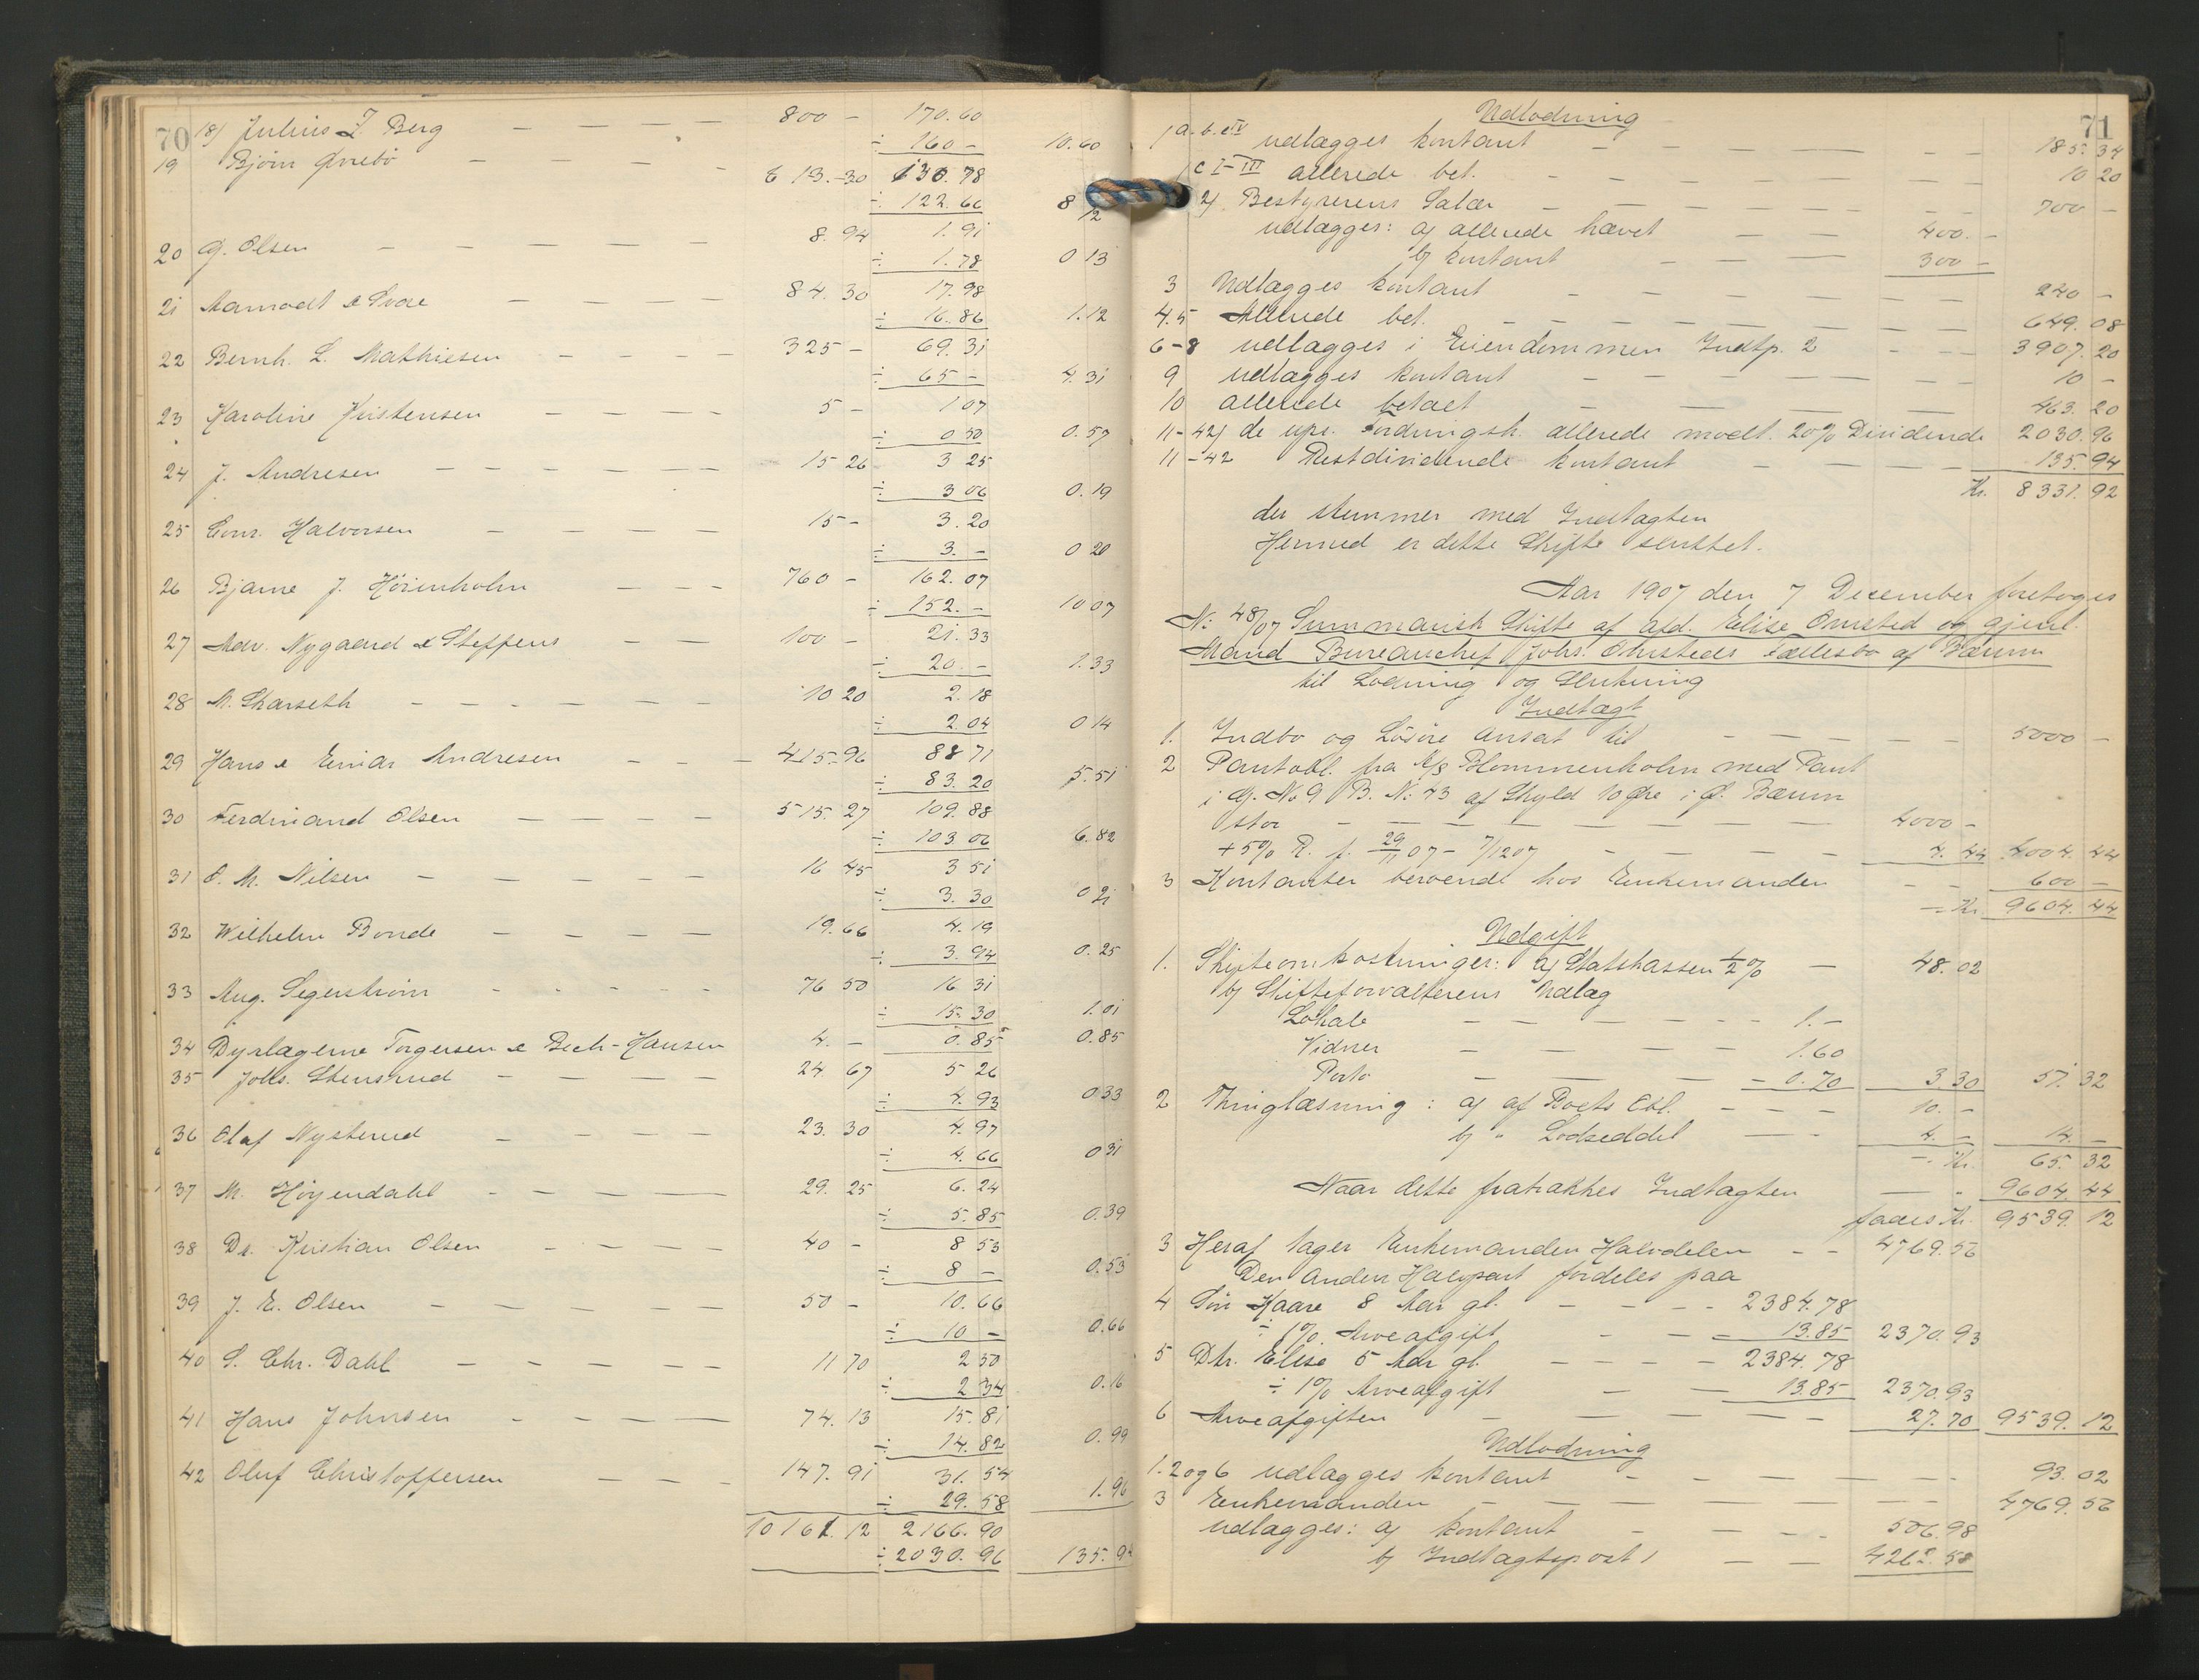 70
18) Julius Z. Berg — — — — 800 - 170.60
÷ 160 - 10.60
19 Bjørn Ønebö — — — — 613.30 130.78
÷ 122.66 8 12
20 G. Olsen — — — — 8.94 1.91
÷ 1.78 0 13
21 Aamodt & Svae — — — — 84.30 17.98
÷ 16.86 1.12
22 Bernh. L. Mathiesen — — — — 325 - 69.31
÷ 65 - 4.31
23 Karoline Kristensen — — — — 5 - 1 07
÷ 0 50 0.57
24 J. Andresen — — — — 15 26 3 25
÷ 3 06 0.19
25 Einr. Halvorsen — — — — 15 - 3.20
÷ 3. - 0 20
26 Bjarne J. Hörenholm — — — 760 - 162.07
÷ 152. - 10 07
27 Adv. Nygaard & Steffens — — — 100 - 21.33
÷ 20. - 1.33
28 M. Skarseth — — — — 10 20 2.18
÷ 2.04 0 14
29 Hans & Einar Andresen — — — 415.96 88 71
÷ 83.20 5.51
30 Ferdinand Olsen — — — — 515.27 109.88
÷ 103.06 6.82
31 O. M. Nilsen — — — — 16 45 3 51
÷ 3.30 0 21
32 Wilhelm Bonde — — — — 19.66 4.19
÷ 3.94 0.25
33 Aug. Segerström — — — — 76 50 16 31
÷ 15.30 1.01
34 Dyrlægerne Torgersen & Bech-Hansen 4. - 0.85 0.85
35 Johs. Stensrud — — — — 24.67 5 26
÷ 4.93 0 33
36 Olaf Nysterud — — — — 23.30 4.97
÷ 4.66 0 31
37 M. Höyendahl — — — — 29.25 6.24
÷ 5.85 0.39
38 Dr. Kristian Olsen — — — — 40 - 8 53
÷ 8 - 0.53
39 J. E. Olsen — — — — 50 - 10.66
÷ 10 - 0.66
40 S. Chr. Dahl — — — — 11 70 2 50
÷ 2 34 0.16
41 Hans Johnsen — — — — 74.13 15.81
÷ 14.82 0.99
42 Oluf Christoffersen — — — 147.91 31.54
÷ 29.58 1.96
10161.12 2166.90
÷ 2030.96 135.94
71
Udlodning
1 a.b.c IV udlægges kontant — — — — 185.34
1 c I-III allerede bet. — — — — 10 20
2) Bestyrerens Salær — — — — 700 -
udlægges: a) allerede hævet — — 400. -
b) kontant — — — 300 -
3 Udlægges kontant — — — — 240 -
4.5 Allerede bet. — — — — 649.08
6-8 udlægges i Eiendommen Indtp. 2 — — 3907.20
9 udlægges kontant — — — — 10 -
10 allerede betalt — — — — 463.20
11-42) de upr. Fordringsh. allerede modt. 20% Dividende 2030.96
11-42 Restdividende kontant — — — 135.94
Kr. 8331.92
der stemmer med Indtægten
Hermed er dette Skifte sluttet.
Aar 1907 den 7 December foretoges
No 48/07 Summarisk Skifte af afd. Elise Omsted og gjenl.
Mand Bureauchef Johs. Omsteds Fællesbo af Bærum
til Lodning og Slutning
Indtægt
1. Indbo og Lösöre ansat til — — — — 5000 -
2 Pantobl. fra A/s Blommenholm med Pant
i G. No 9 B. No 73 af Skyld 10 Øre i Ø. Bærum
stor — — — — 4000 -
+ 5% R. f. 29/11 07 - 7/12 07 — — — 4.44 4004.44
3 Kontanter beroende hos Enkemanden — — 600 -
= Kr. 9604.44
Udgift
1. Skifteomkostninger: a) Statskassen ½% — 48.02
b) Skifteforvalterens Udlæg
Lokale — — — — 1. -
Vidner — — — — 1.60
Porto — — — — 0.70 3.30 51.32
2 Thinglæsning: a) af Boets Obl. — — — 10. -
b) " Lodseddel — — 4. - 14. -
= Kr. 65.32
Naar dette fratrækkes Indtægten — - 9604.44
faaes Kr. 9539.12
3 Heraf tager Enkemanden Halvdelen — — 4769.56
Den anden Halvpart fordeles paa
4 Sön Kaare 8 Aar gl. — — — 2384.78
÷ 1% Arveafgift — — 13.85 2370.93
5 Dtr. Elise 5 Aar gl. — — — 2384.78
÷ 1% Arveafgift — — 13.85 2370.93
6 Arveafgiften — — — — 27.70 9539.12
Udlodning
1.2 og 6 udlægges kontant — — — — 93.02
3 Enkemanden — — — — 4769.56
udlægges: a) kontant — — — 506.98
b) Indtægtspost 1 — — 4262.58